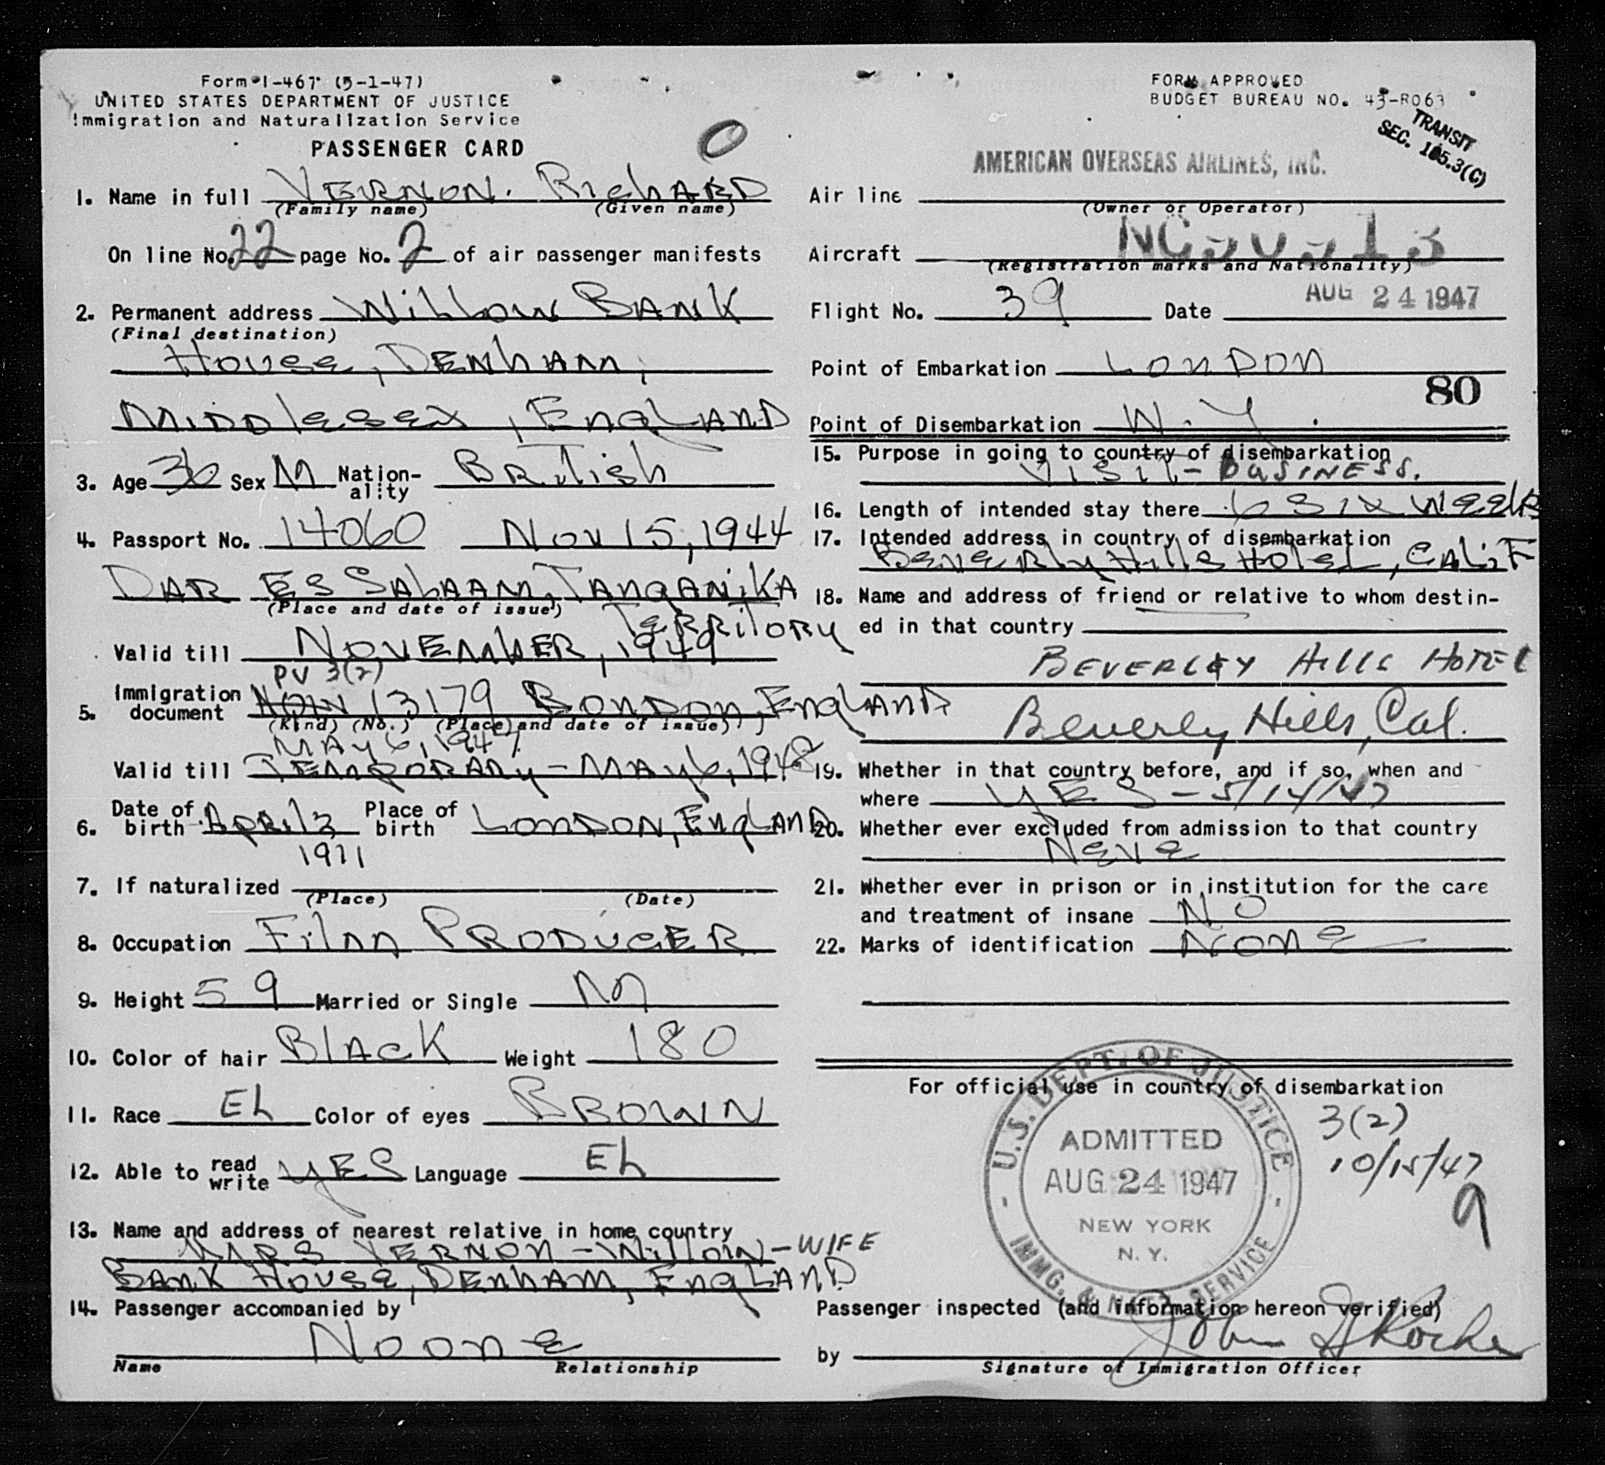 Form I-467 (5-1-47)
UNITED STATES DEPARTMENT OF JUSTICE
Immigration and Naturalization Service
PASSENGER CARD
O
1. Name in full VERNON. RichARD
(Family name) (Given name)
On line No. 22 page No. 2 of air passenger manifests
2. Permanent address Willow BANK
(Final destination)
House, DENhAM,
MIDDlesex, EnglAND
3. Age 36 Sex M Nation-ality British
4. Passport No. 14060 Nov 15, 1944
DAR ES SALAAM, TANGANiKA
(Place and date of issue)
TERRITORY
Valid till NOVEMBER, 1949
PV 3(2)
5. Immigration document 13179 LONDON, EnglAND
(Kind) (No.) (Place and date of issue)
MAY 6, 1947
Valid till TEMPORARY - MAY 6, 1948
6. Date of birth April 3 Place of birth LONDON, EnglAND
1911
7. If naturalized
(Place) (Date)
8. Occupation Film PRODUCER
9. Height 5 9 Married or Single M
10. Color of hair BlAcK Weight 180
11. Race Eh Color of eyes BROWN
12. Able to read write YES Language Eh
13. Name and address of nearest relative in home country
MRS VERNON - Willow - WIFE
BANK House, DENhAM, EnglAND
14. Passenger accompanied by
Noone
Name Relationship
FORM APPROVED
BUDGET BUREAU NO. 43-R063
TRANSIT
SEC. 105.3(C)
AMERICAN OVERSEAS AIRLINES, INC.
Air line
(Owner or Operator)
Aircraft
(Registration marks and Nationality)
Flight No. 39 Date AUG 24 1947
Point of Embarkation LONDON
80
Point of Disembarkation N.Y.
15. Purpose in going to country of disembarkation
VISIT - BUSINESS.
16. Length of intended stay there 6 SIX WEEKS
17. Intended address in country of disembarkation
BEVERLY Hills Hotel, CALIF
18. Name and address of friend or relative to whom destin-
ed in that country
BEVERLEY HILLS HOTEL
Beverly Hills, Cal.
19. Whether in that country before, and if so, when and
where YES - 5/14/47
20. Whether ever excluded from admission to that country
Neve
21. Whether ever in prison or in institution for the care
and treatment of insane NO
22. Marks of identification NONE
For official use in country of disembarkation
U.S. DEPT. OF JUSTICE
ADMITTED
AUG 24 1947
NEW YORK
N. Y.
IMMG. & NATZ. SERVICE
3(2)
10/15/47
9
Passenger inspected (and information hereon verified)
by John
Signature of Immigration Officer